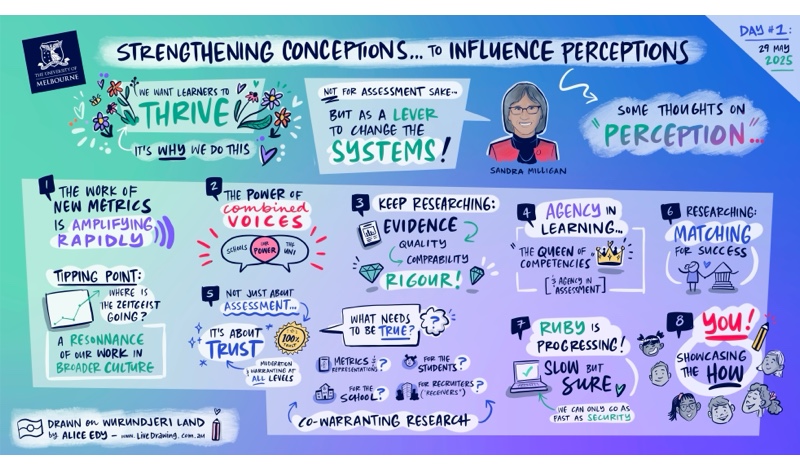 THE UNIVERSITY OF
MELBOURNE
STRENGTHENING CONCEPTIONS... TO INFLUENCE PERCEPTIONS
DAY #1:
29 MAY
2025
WE WANT LEARNERS TO
THRIVE
IT'S WHY WE DO THIS
NOT FOR ASSESSMENT SAKE...
BUT AS A LEVER
TO CHANGE THE
SYSTEMS!
SANDRA MILLIGAN
SOME THOUGHTS ON
"PERCEPTION"...
1
THE WORK OF
NEW METRICS
IS AMPLIFYING
RAPIDLY
TIPPING POINT:
WHERE IS
THE ZEITGEIST
GOING?
A RESONNANCE
OF OUR WORK IN
BROADER CULTURE
2
THE POWER OF
combined
VOICES
SCHOOLS
OUR
POWER
THE
UNI
3
KEEP RESEARCHING:
EVIDENCE
QUALITY
COMPRABILITY
RIGOUR!
4
AGENCY IN
LEARNING...
"THE QUEEN OF
COMPETENCIES
[& AGENCY IN
ASSESSMENT]
5
NOT JUST ABOUT
ASSESSMENT...
IT'S ABOUT
TRUST
100%
TRUST
MODERATION
& WARRANTING AT
ALL LEVELS
WHAT NEEDS
TO BE TRUE?
?
METRICS &
REPRESENTATIONS?
FOR THE
STUDENTS?
FOR THE
SCHOOL?
FOR RECRUITERS?
("RECEIVERS")
CO-WARRANTING RESEARCH
6
RESEARCHING:
MATCHING
FOR SUCCESS
7
RUBY IS
PROGRESSING!
SLOW BUT
SURE
WE CAN ONLY GO AS
FAST AS SECURITY
8
YOU!
SHOWCASING
THE HOW
DRAWN on WURUNDJERI LAND
by ALICE EDY - www.LiveDrawing.com.au